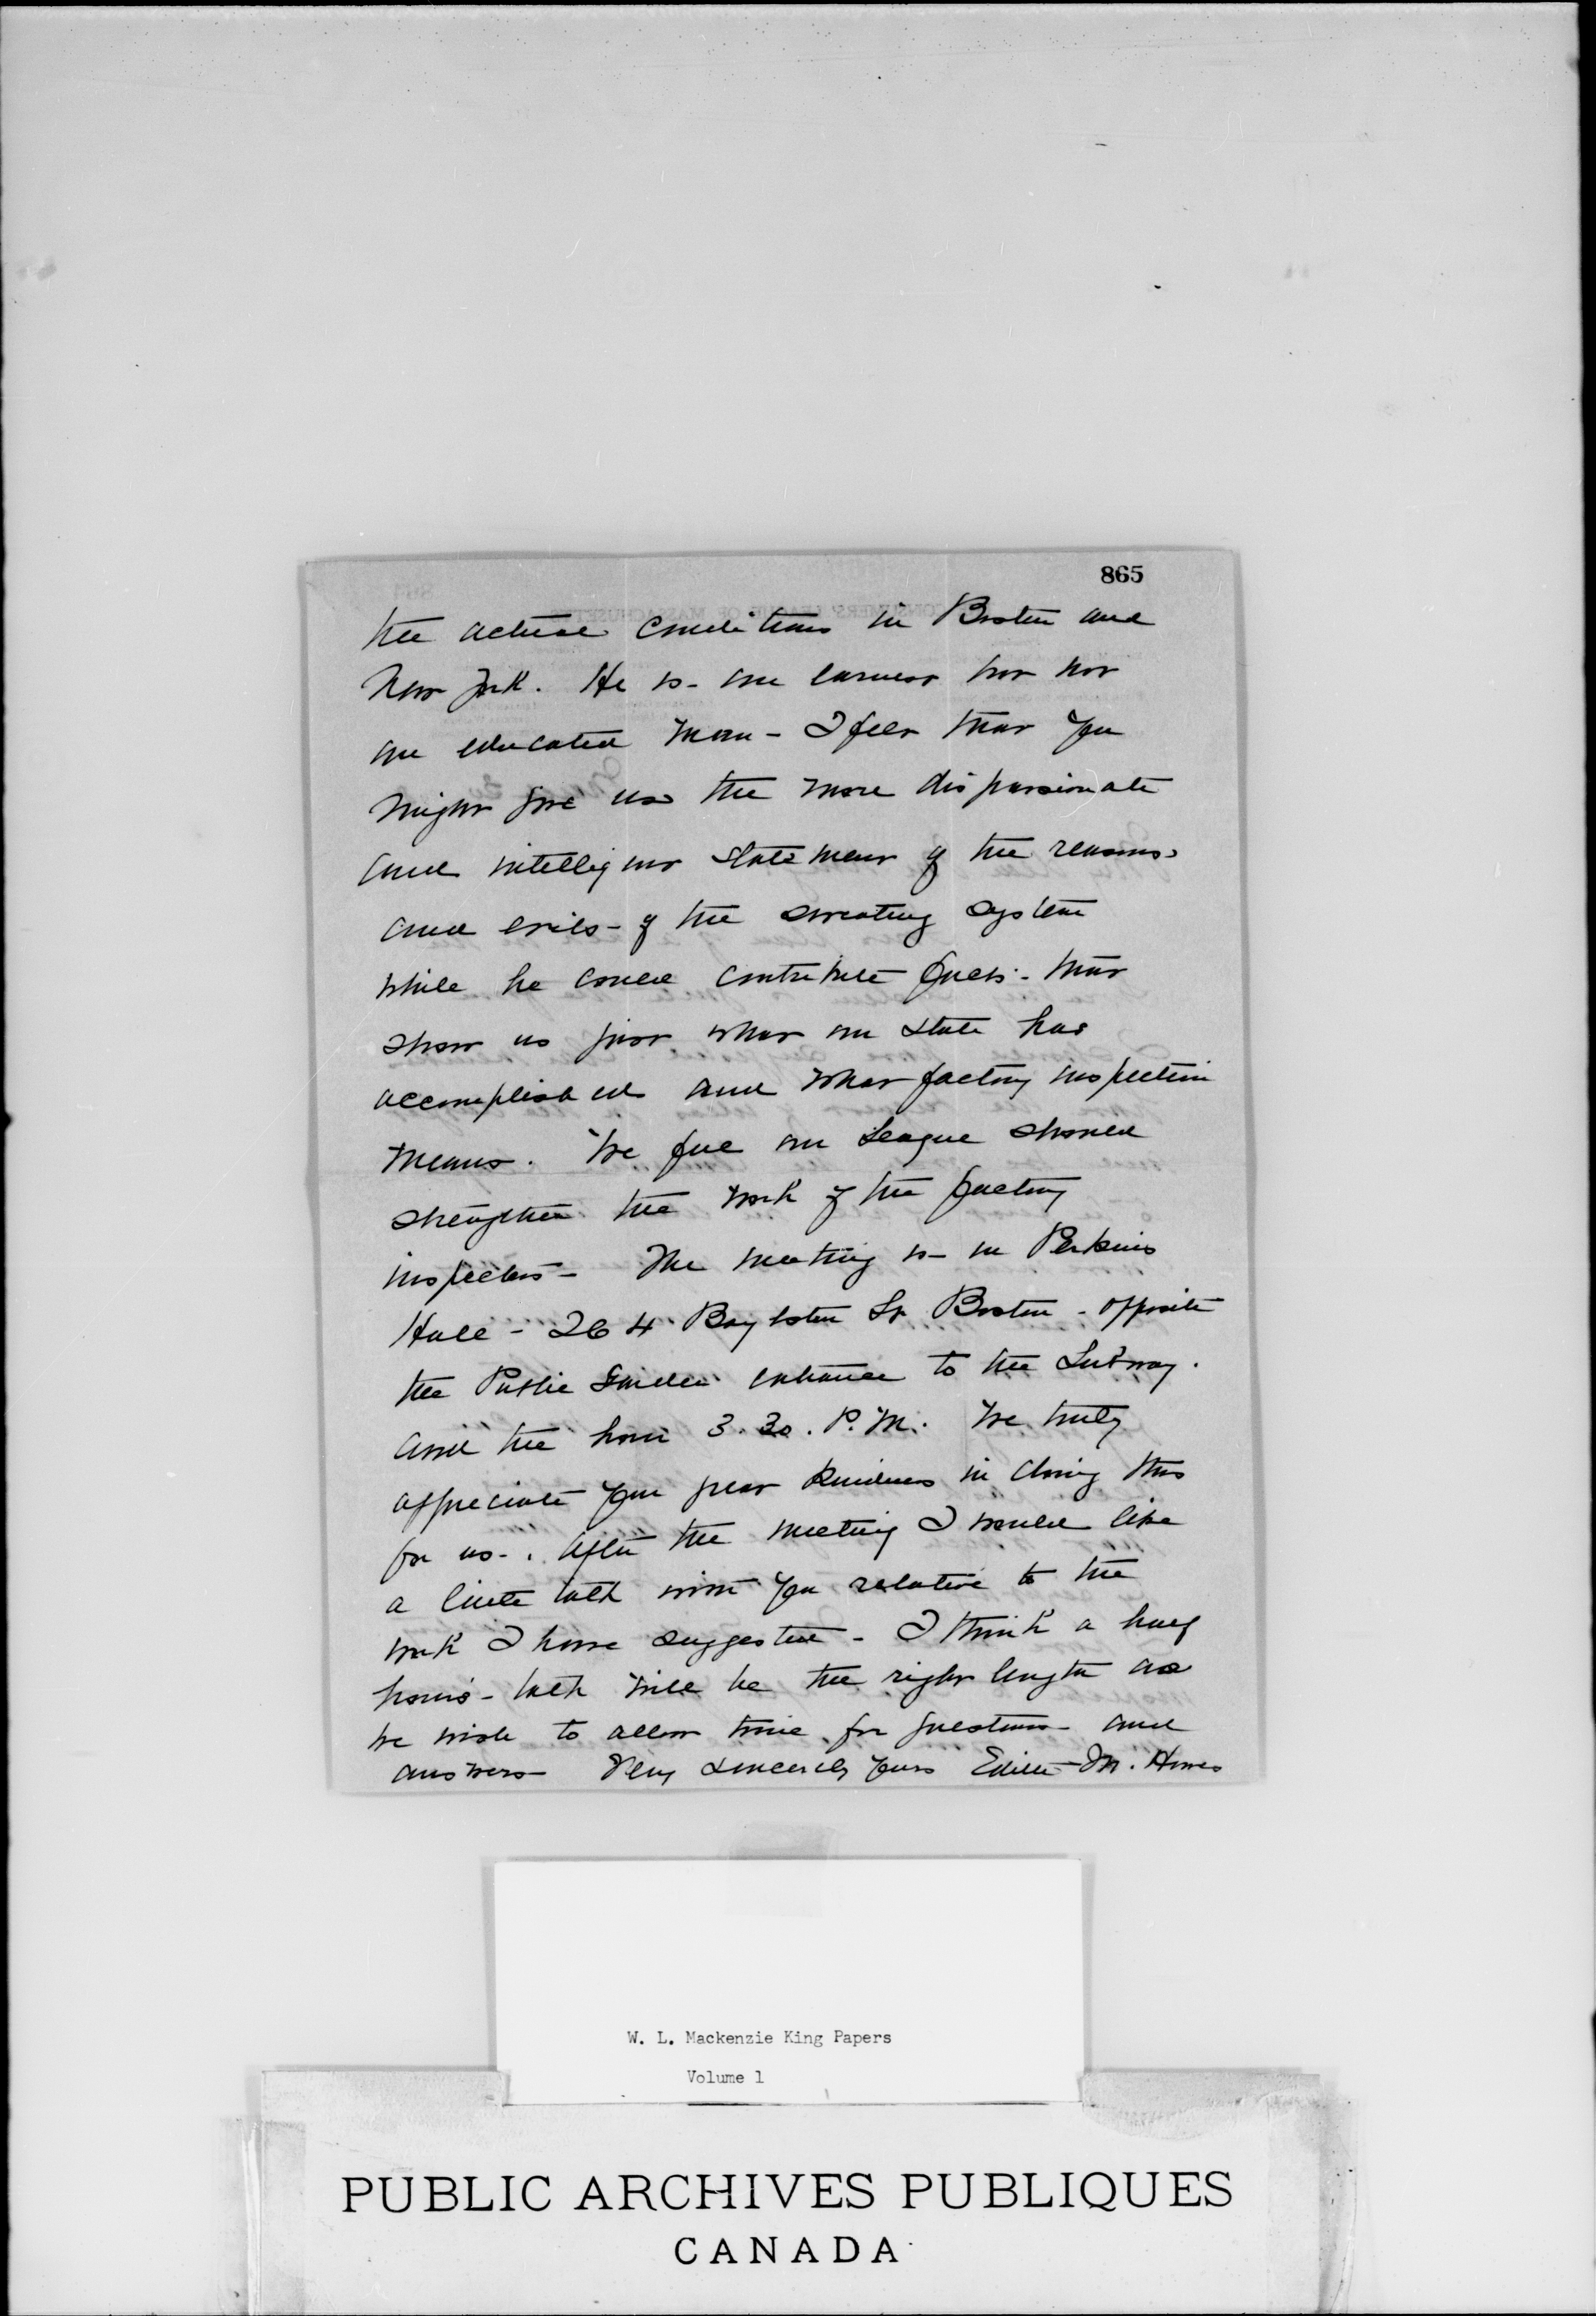 865
the actual conditions in Boston and
New York. He is - an earnest but not
an educated man - I felt that you
might give us the more dispassionate
and intelligent statement of the reasons
and evils - of the sweating system
while he could contribute facts - that
show us just what our state has
accomplished and what factory inspection
means. We feel our League should
strengthen the work of the factory
inspectors - The meeting is - in Perkins
Hall - 264 Boylston St. Boston - opposite
the Public Garden entrance to the Subway.
and the hour 3.30. P.M. We truly
appreciate your great kindness in doing this
for us - . After the meeting I would like
a little talk with you relative to the
work I have suggested - I think a half
hour's - talk will be the right length as
we wish to allow time for questions - and
answers - Very sincerely yours Edith M. Howes
W. L. Mackenzie King Papers
Volume 1
PUBLIC ARCHIVES PUBLIQUES
CANADA